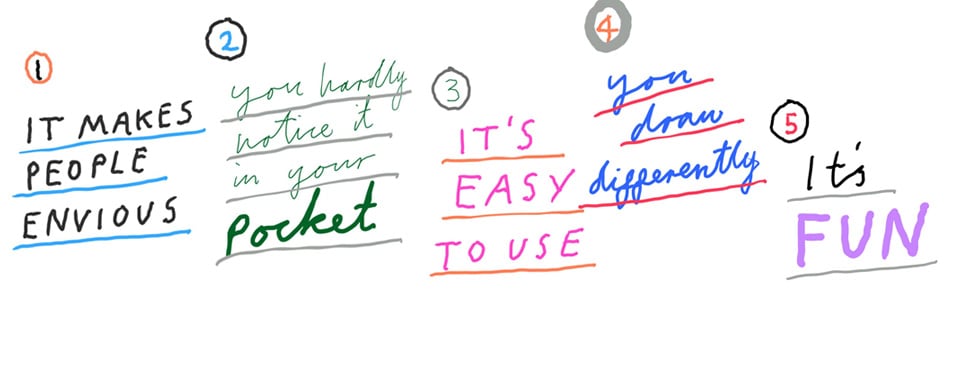 1
IT MAKES
PEOPLE
ENVIOUS
2
you hardly
notice it
in your
Pocket.
3
IT'S
EASY
TO USE
4
you
draw
differently
5
It's
FUN